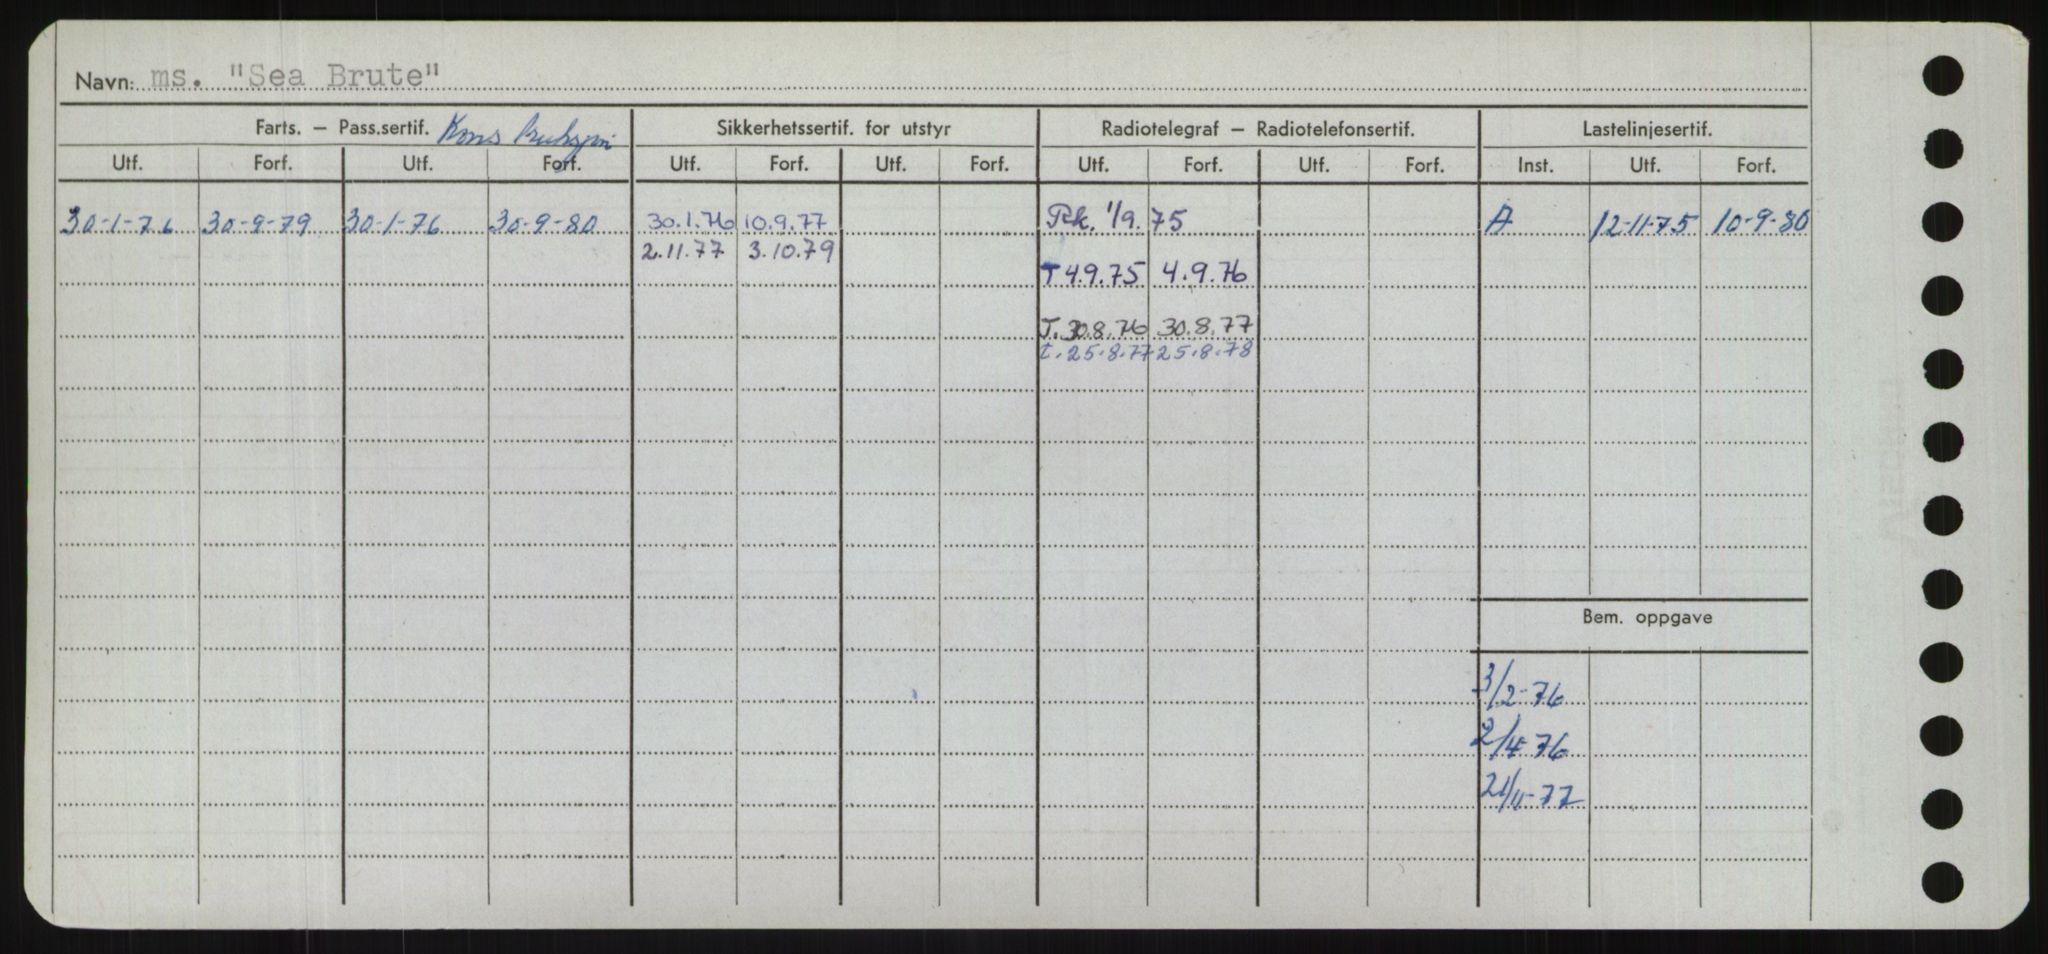 Navn: ms. "Sea Brute"
Farts. – Pass.sertif. Sikkerhetssertif. for utstyr Radiotelegraf – Radiotelefonsertif. Lastelinjesertif.
Utf. Forf. Utf. Forf. Utf. Forf. Utf. Forf. Utf. Forf. Utf. Forf. Inst. Utf. Forf.
30-1-76 30-9-79 30-1-76 30-9-80 30.1.76 10.9.77 1/9.75 A 12-11-75 10-9-80
2.11.77 3.10.79
T 4.9.75 4.9.76
T. 30.8.76 30.8.77
t. 25.8.77 25.8.78
Bem. oppgave
3/2-76
2/4-76
21/11-77